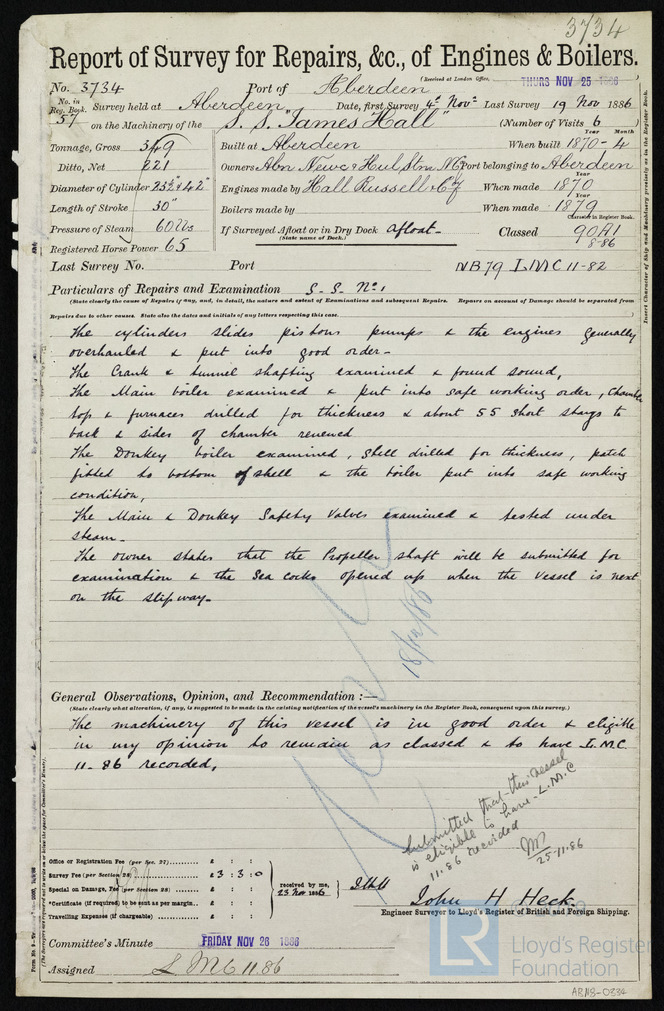 3734
Report of Survey for Repairs, &c., of Engines & Boilers.
(Received at London Office, THURS NOV 25 1886)
No. 3734 Port of Aberdeen
No. in Reg. Book. 57 Survey held at Aberdeen Date, first Survey 4th Nov. Last Survey 19 Nov 1886
on the Machinery of the S. S. "James Hall" (Number of Visits 6)
Tonnage, Gross 349 Built at Aberdeen When built 1870-4
Year Month
Ditto, Net 221 Owners Abn Newc & Hull Stm N Co Port belonging to Aberdeen
Diameter of Cylinder 23½" & 42" Engines made by Hall Russell & Co When made 1870
Year
Length of Stroke 30" Boilers made by When made 1879
Year
Pressure of Steam 60 lbs If Surveyed Afloat or in Dry Dock afloat Classed 90A1
(State name of Dock.)
Character in Register Book.
8-86
Registered Horse Power 65
Last Survey No. Port NB 79 LMC 11-82
Particulars of Repairs and Examination S. S. No. 1
(State clearly the cause of Repairs if any, and, in detail, the nature and extent of Examinations and subsequent Repairs. Repairs on account of Damage should be separated from
Repairs due to other causes. State also the dates and initials of any letters respecting this case.
The cylinders slides pistons pumps & the engines generally
overhauled & put into good order-
The Crank & tunnel shafting examined & found sound,
The Main boiler examined & put into safe working order, chamber
top & furnaces drilled for thickness & about 55 short stays to
back & sides of chamber renewed
The Donkey boiler examined, shell drilled for thickness, patch
fitted to bottom of shell & the boiler put into safe working
condition,
The Main & Donkey Safety Valves examined & tested under
steam-
The owner states that the Propeller shaft will be submitted for
examination & the Sea cocks opened up when the vessel is next
on the slipway-
General Observations, Opinion, and Recommendation :—
(State clearly what alteration, if any, is suggested to be made in the existing notification of the vessel's machinery in the Register Book, consequent upon this survey.)
The machinery of this vessel is in good order & eligible
in my opinion to remain as classed & to have L.M.C
11-86 recorded,
Submitted that this vessel
is eligible to have L.M.C
11.86 recorded
25-11-86
Office or Registration Fee (per Sec. 27) £ : :
Survey Fee (per Section 28) £3 : 3 : 0
Special on Damage, Fee (per Section 28) £ : :
*Certificate (if required) to be sent as per margin £ : :
Travelling Expenses (if chargeable) £ : :
received by me,
23 Nov 1886
John H Heck
Engineer Surveyor to Lloyd's Register of British and Foreign Shipping.
Committee's Minute FRIDAY NOV 26 1886
Assigned L M C 11.86
LR
Lloyd's Register
Foundation
Insert Character of Ship and Machinery precisely as in the Register Book.